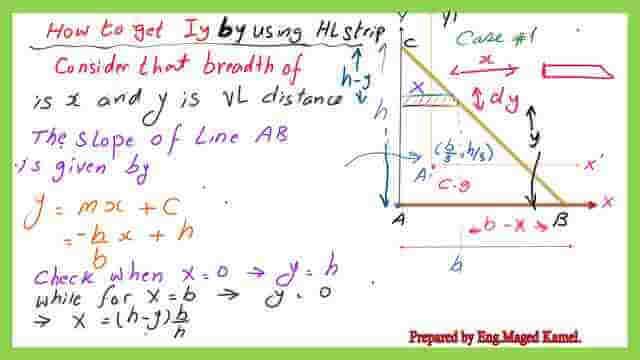 How to get Iy by using HL strip
Consider that breadth of
is x and y is VL distance
The Slope of Line AB
is given by
y = mx + C
= -h/b x + h
Check when x=0 → y=h
while for x=b → y=0
→ x = (h-y) b/h
Y
y1
Case #1
C
x
h-y
h
x
dy
y
(b/3, h/3)
A'
x'
C.g
A
B
X
b-x
b
Prepared by Eng.Maged Kamel.